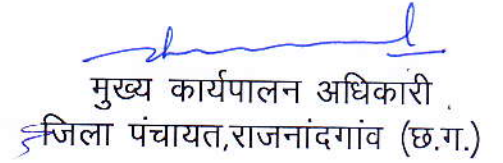 मुख्य कार्यपालन अधिकारी
जिला पंचायत,राजनांदगांव (छ.ग.)